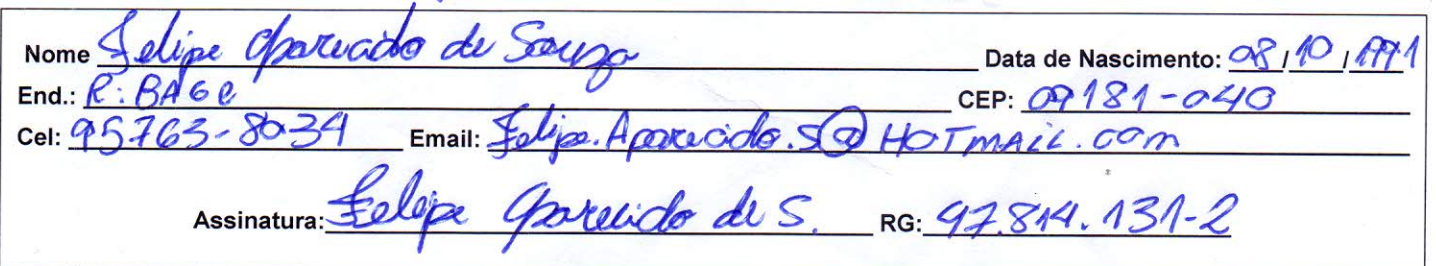 Nome Felipe Aparecido de Souza Data de Nascimento: 08/10/1991
End.: R: BAGE CEP: 09181-040
Cel: 95763-8034 Email: Felipe.Aparecido.S@HOTMAIL.com
Assinatura: Felipe Aparecido de S. RG: 47.814.131-2